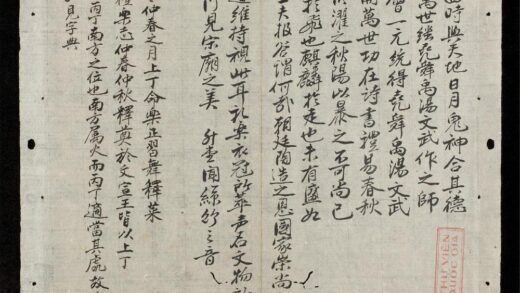 當時與天地日月鬼神合其德
萬世繼堯舜禹湯文武作之師
一元統得堯舜禹湯文武
而萬世功在詩書禮易春秋
濯之秋陽以暴之不可尚已
於飛也麒麟於走也未有盛如
工夫報答謂何哉朝廷陶造之恩國家崇尚
道維持視此耳礼樂衣冠所萃声名文物
門見宗廟之美 升堂聞絲竹之音
仲春之月上丁命樂正習舞釋菜
禮樂志仲春仲秋釋奠於文宣王皆以上丁
丙丁南方之位也南方属火而丙丁適當其處故
見字典